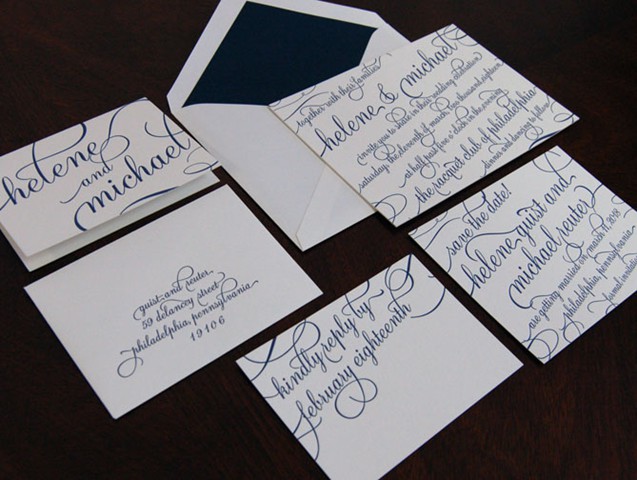 helene
and
michael
together with their families
helene & michael
invite you to share in their wedding celebration
saturday, the eleventh of march, two thousand eighteen
at half past five o'clock in the evening
the racquet club of philadelphia
dinner and dancing to follow
save the date!
helene guist and
michael reuter
are getting married on march 11, 2018
philadelphia, pennsylvania
formal invitation
guist and reuter
59 delancey street
philadelphia, pennsylvania
19106
kindly reply by
february eighteenth